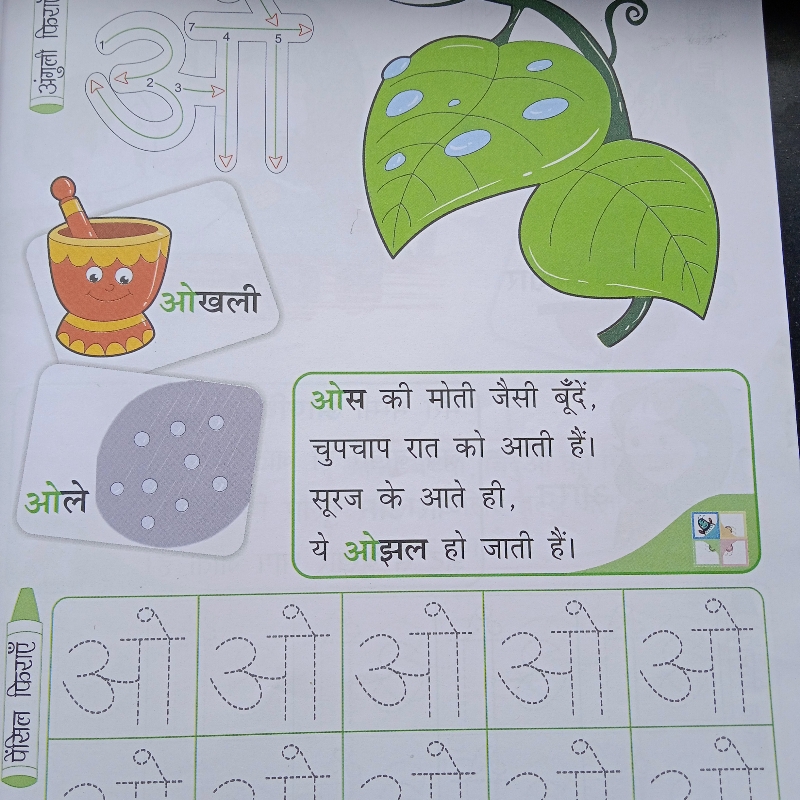 अंगुली फिराएँ
1
2
3
4
5
7
ओखली
ओले
ओस की मोती जैसी बूँदें,
चुपचाप रात को आती हैं।
सूरज के आते ही,
ये ओझल हो जाती हैं।
पेंसिल फिराएँ
ओ ओ ओ ओ ओ
ओ ओ ओ ओ ओ